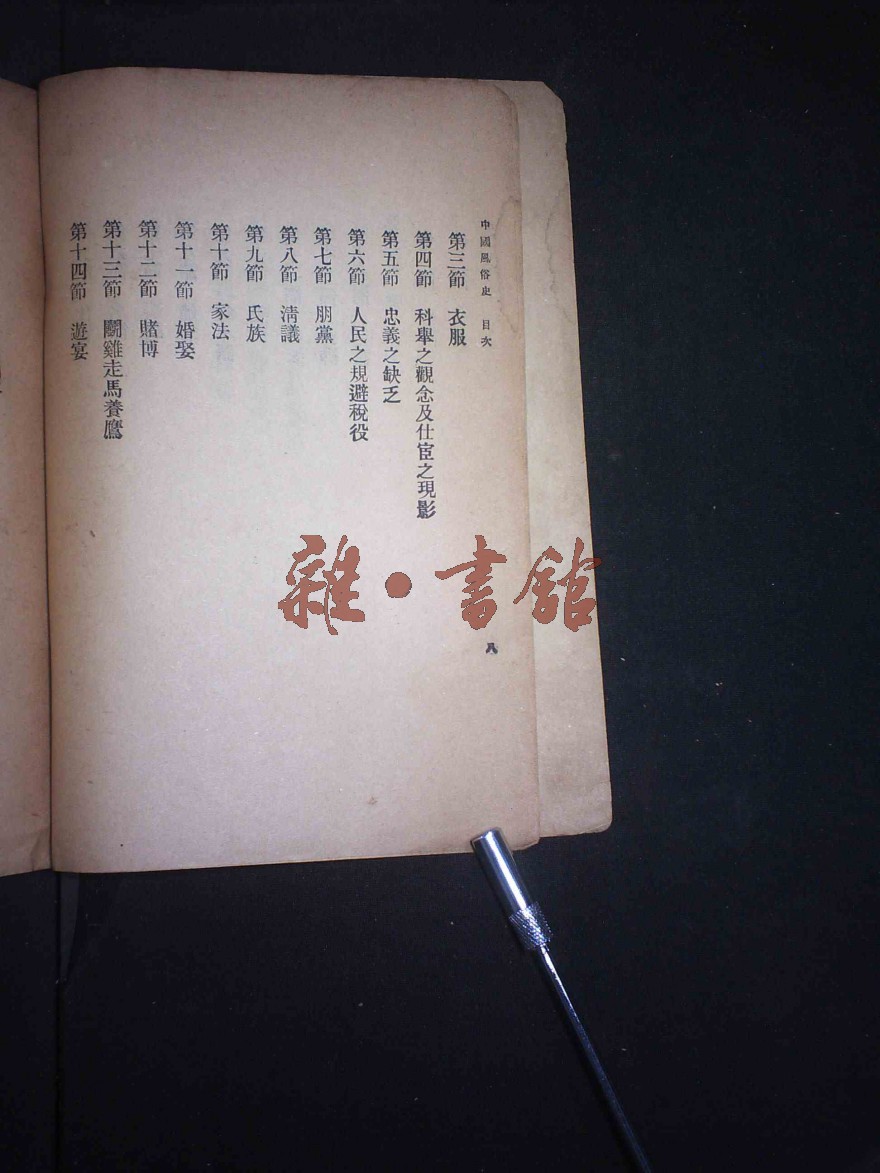 中國風俗史　目次
第三節　衣服
第四節　科舉之觀念及仕宦之現影
第五節　忠義之缺乏
第六節　人民之規避稅役
第七節　朋黨
第八節　淸議
第九節　氏族
第十節　家法
第十一節　婚娶
第十二節　賭博
第十三節　鬭雞走馬養鷹
第十四節　遊宴
八
雜·書館